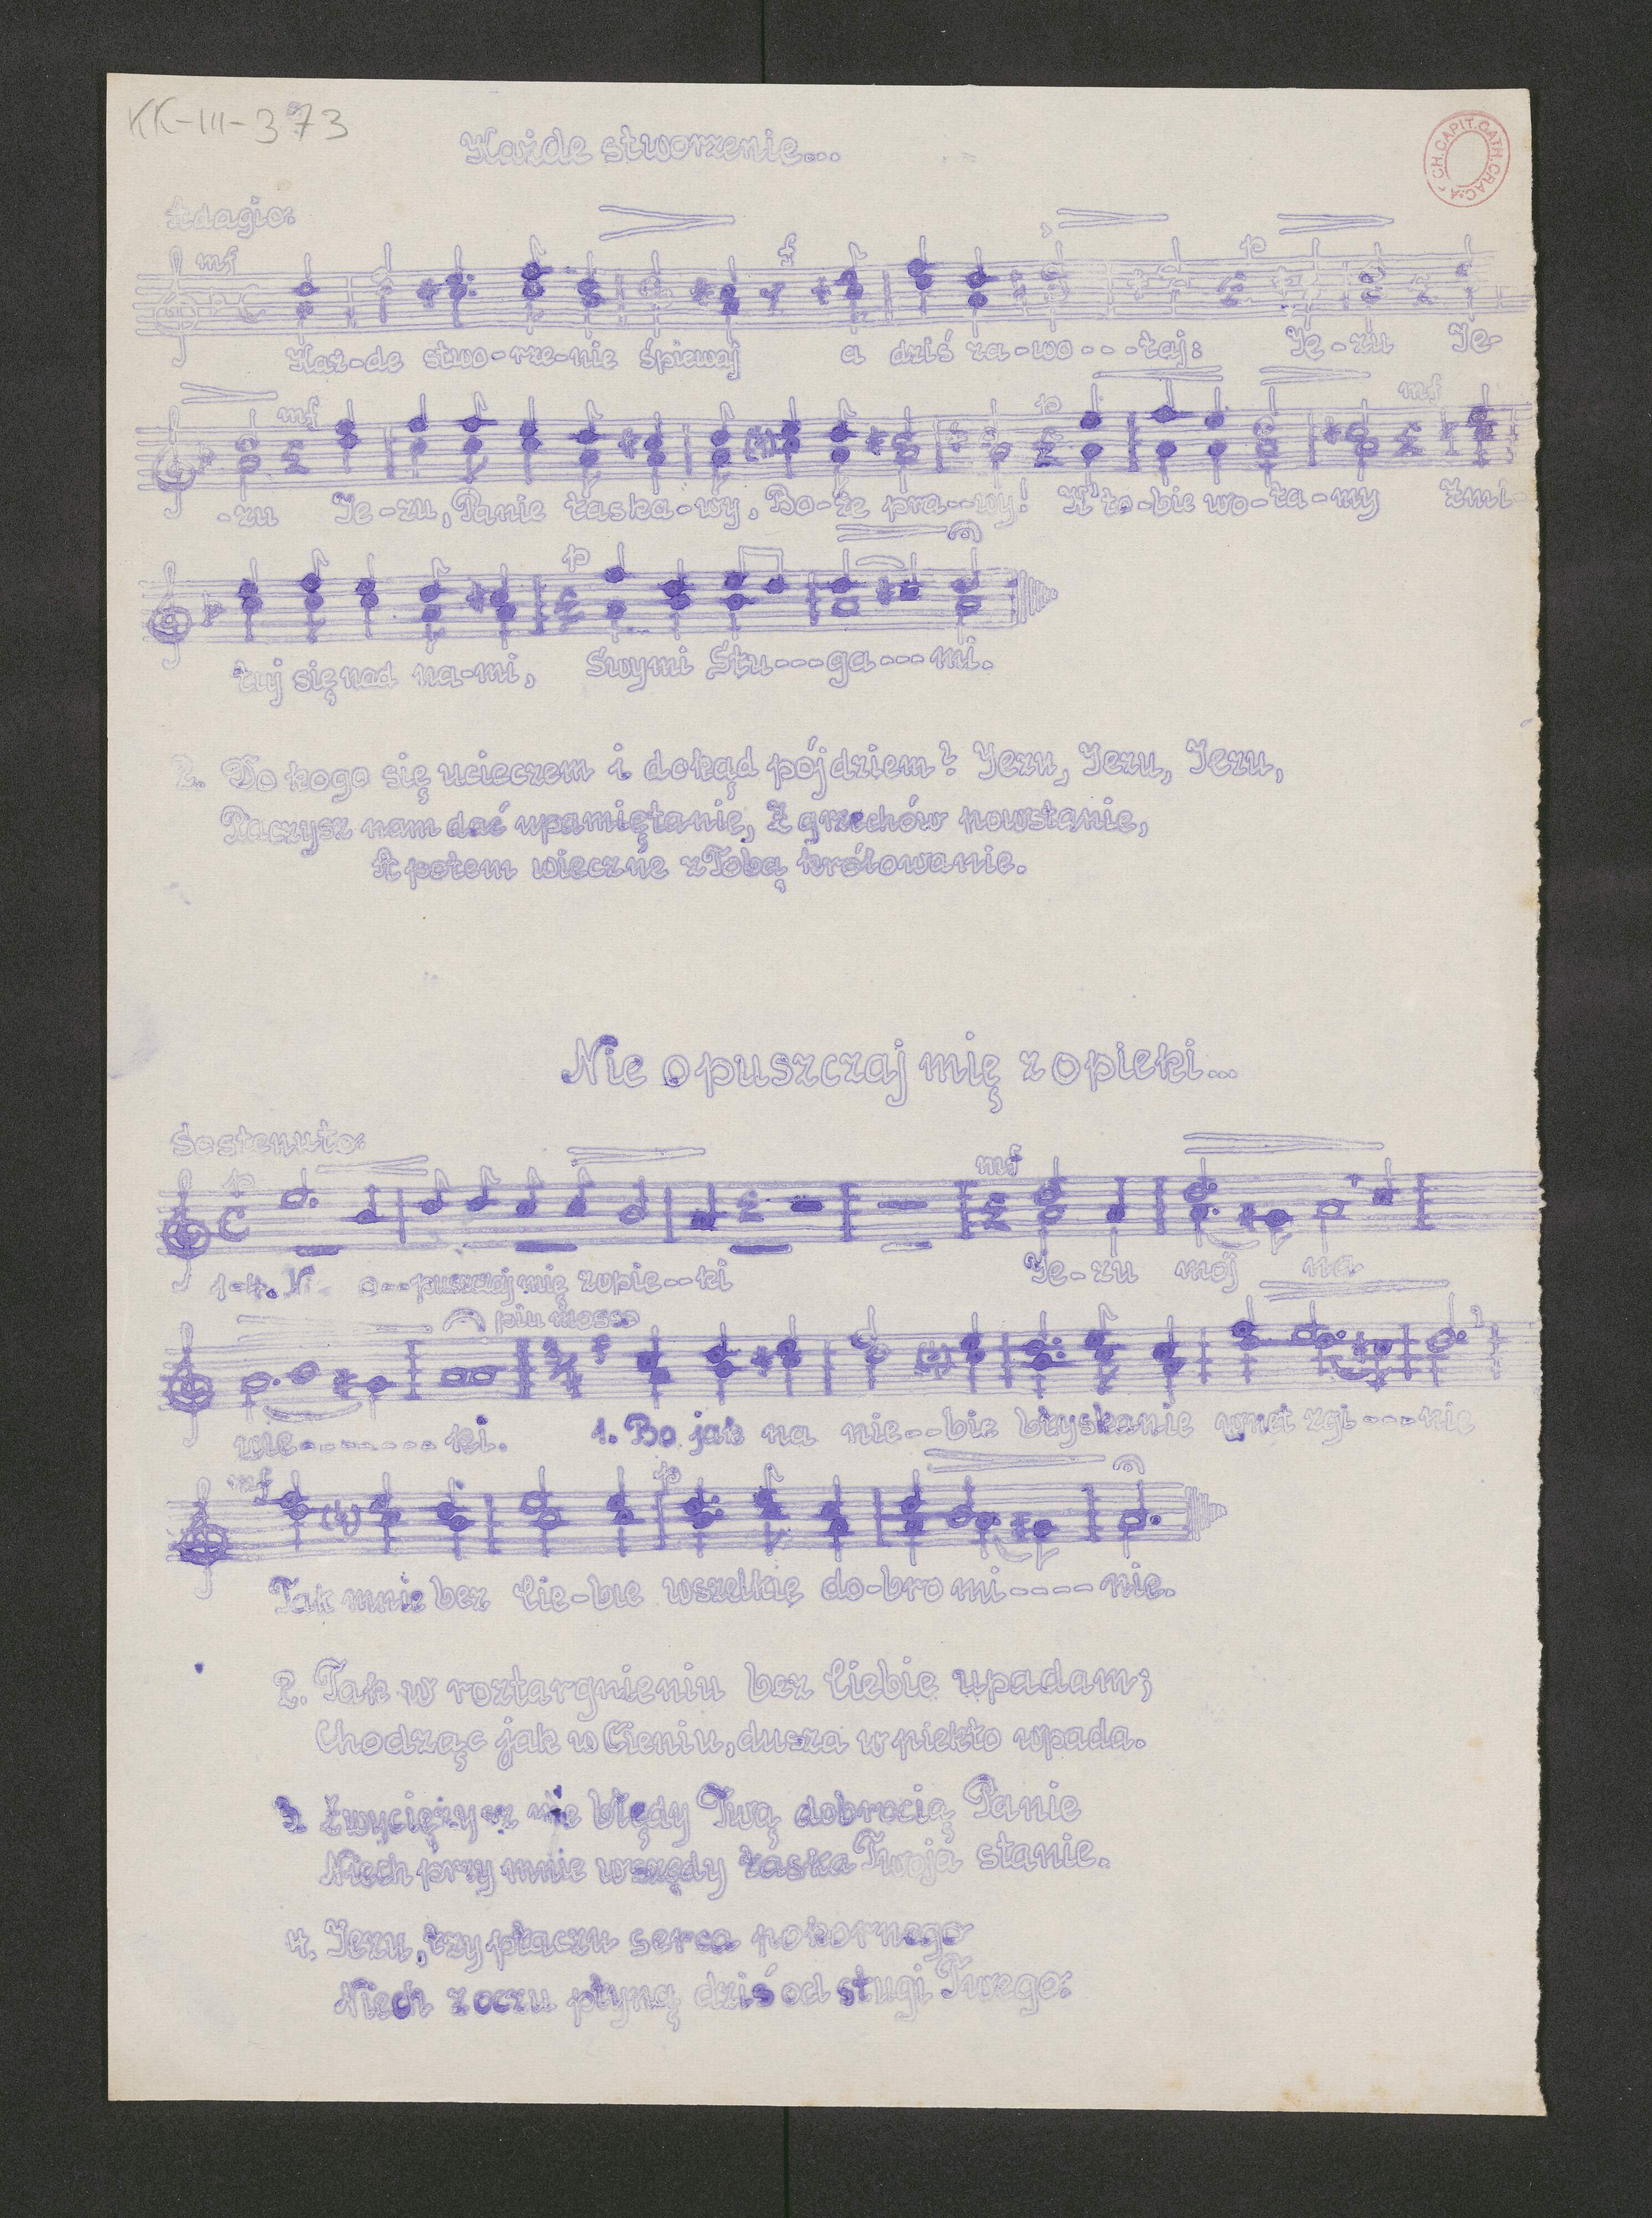 KK-III-373
Każde stworzenie...
CH.CAPIT.CATH.CRAC.
Adagio.
mf f p
Każ-de stwo-rze-nie śpiewaj a dziś za-wo---łaj: Je-zu Je-
mf p mf
-zu Je-zu, Panie łaska-wy, Bo-że pra--wy! K'to-bie wo-ła-my Zmi-
p
łuj się nad na-mi, Swymi Słu---ga---mi.
2. Do kogo się ucieczem i dokąd pójdziem? Jezu, Jezu, Jezu,
Raczysz nam dać upamiętanie, Z grzechów powstanie,
A potem wieczne z Tobą królowanie.
Nie opuszczaj mię z opieki...
Sostenuto.
p mf
1-4. N o--puszczaj mię z opie--ki Je-zu mój na
piu mosso
f
wie------- ki. 1. Bo jak na nie--bie błyskanie wnet zgi---nie
mf p
Tak mnie bez Cie-bie wszelkie do-bro mi---- nie.
2. Tak w roztargnieniu bez Ciebie upadam;
Chodząc jak w Cieniu, dusza w piekło wpada.
3. Zwyciężysz me błędy Twą dobrocią Panie
Niech przy mnie wszędy łaska Twoja stanie.
4. Jezu, łzy płaczu serca pokornego
Niech z oczu płyną dziś od sługi Twego.